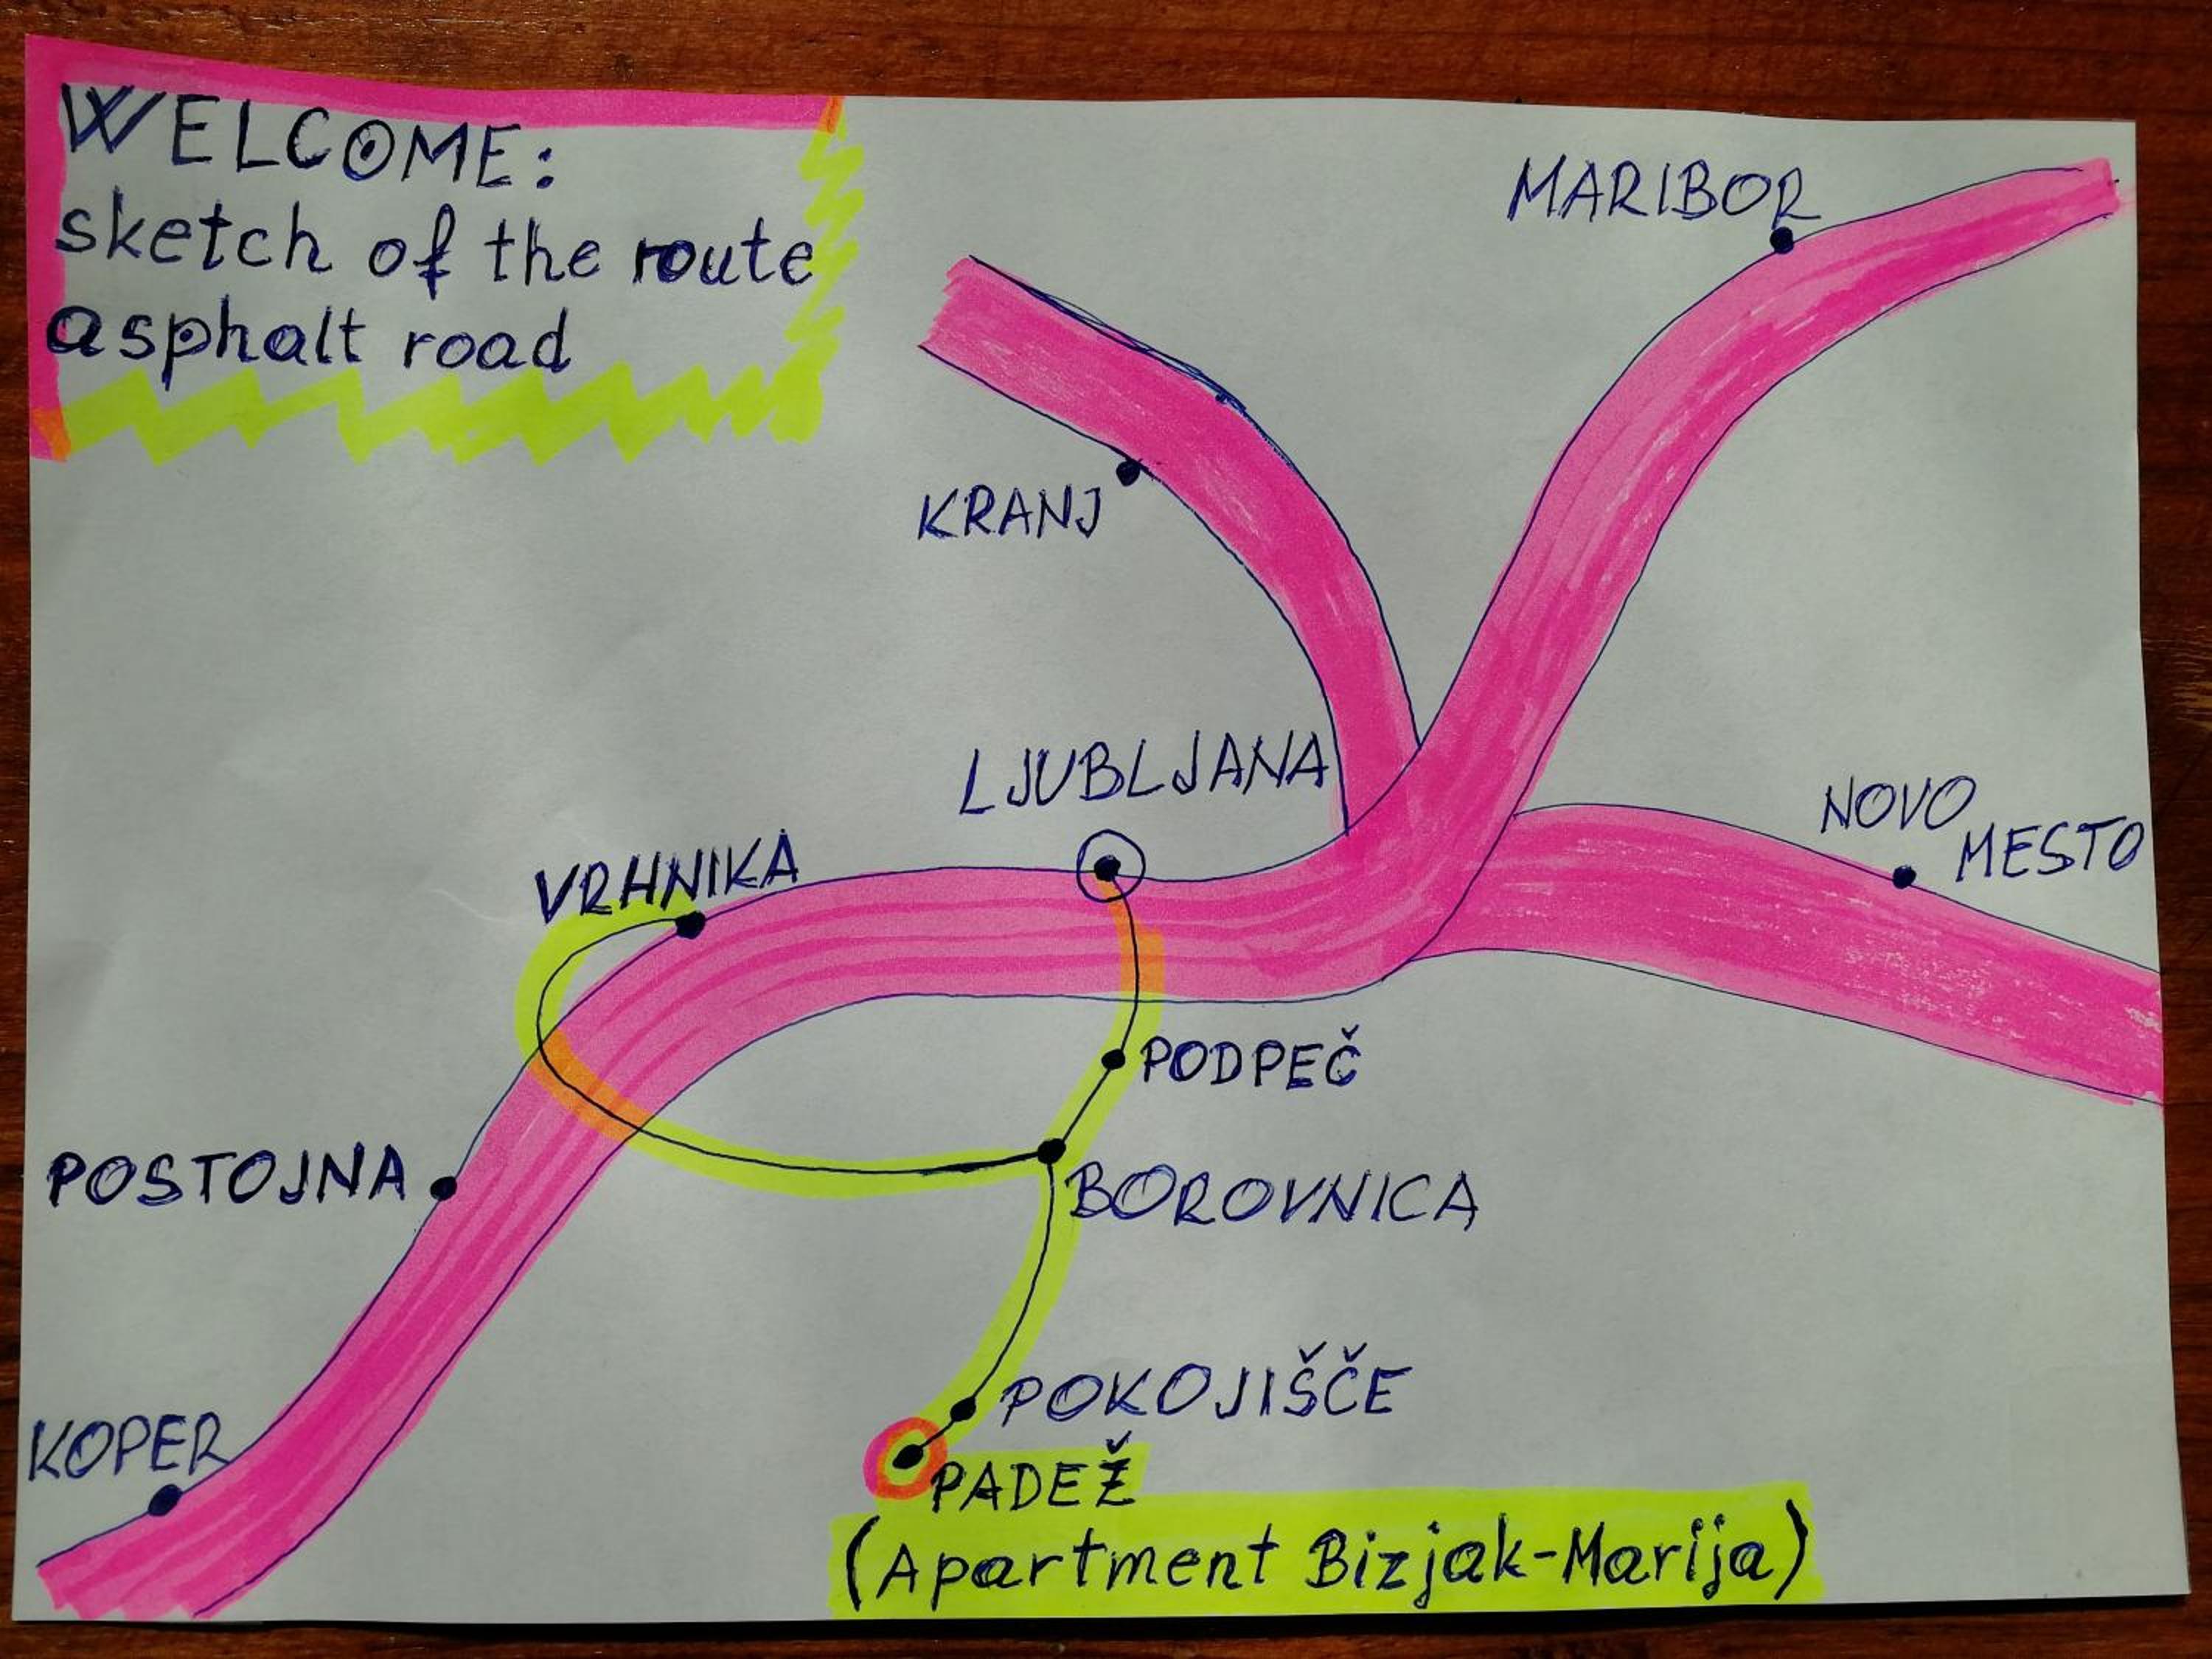 WELCOME:
sketch of the route
asphalt road
MARIBOR
KRANJ
LJUBLJANA
NOVO
MESTO
VRHNIKA
PODPEČ
POSTOJNA
BOROVNICA
POKOJIŠČE
KOPER
PADEŽ
(Apartment Bizjak-Marija)